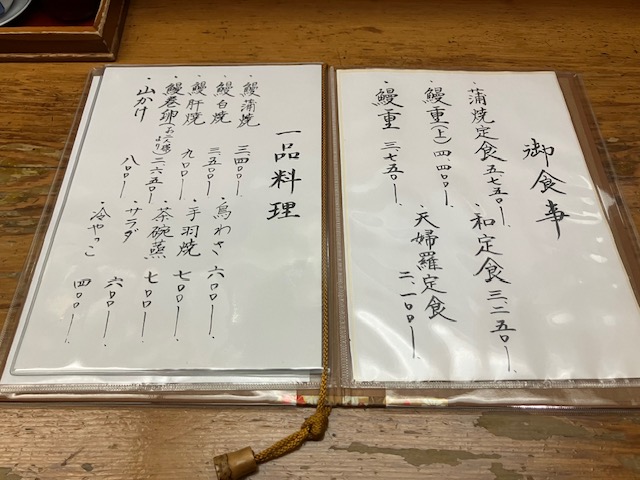 御食事
・蒲焼定食 五、七五〇
・鰻重(上) 四、四〇〇
・鰻重 三、七五〇
・和定食 三、二五〇
・天婦羅定食 二、一〇〇
一品料理
・鰻蒲焼 三、四〇〇
・鰻白焼 三、五〇〇
・鰻肝焼 九〇〇
・鰻巻卵(お二人様より) 二、六五〇
・山かけ 八〇〇
・鳥わさ 六〇〇
・手羽焼 七〇〇
・茶碗蒸 七〇〇
・サラダ 六〇〇
・冷やっこ 四〇〇